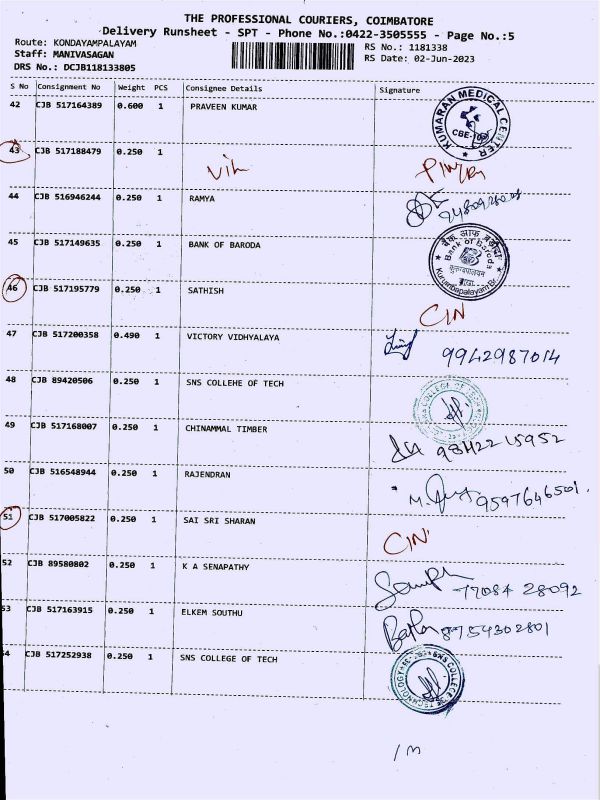 THE PROFESSIONAL COURIERS, COIMBATORE
Delivery Runsheet - SPT - Phone No.:0422-3505555 - Page No.:5
Route: KONDAYAMPALAYAM RS No.: 1181338
Staff: MANIVASAGAN RS Date: 02-Jun-2023
DRS No.: DCJB118133805
S No Consignment No Weight PCS Consignee Details Signature
42 CJB 517164389 0.600 1 PRAVEEN KUMAR
KUMARAN MEDICAL CENTER
CBE-
43 CJB 517188479 0.250 1
44 CJB 516946244 0.250 1 RAMYA
45 CJB 517149635 0.250 1 BANK OF BARODA
बैंक ऑफ़ बड़ौदा
Bank of Baroda
Kurumbapalayam Br.
46 CJB 517195779 0.250 1 SATHISH
CIN
47 CJB 517200358 0.490 1 VICTORY VIDHYALAYA
9942987014
48 CJB 89420506 0.250 1 SNS COLLEHE OF TECH
COLLEGE OF
49 CJB 517168007 0.250 1 CHINNAMMAL TIMBER
98422 15952
50 CJB 516548944 0.250 1 RAJENDRAN
9597646501
51 CJB 517005822 0.250 1 SAI SRI SHARAN
CIN
52 CJB 89580802 0.250 1 K A SENAPATHY
77084 28092
53 CJB 517163915 0.250 1 ELKEM SOUTHU
8754302801
54 CJB 517252938 0.250 1 SNS COLLEGE OF TECH
SNS COLLEGE OF TECHNOLOGY